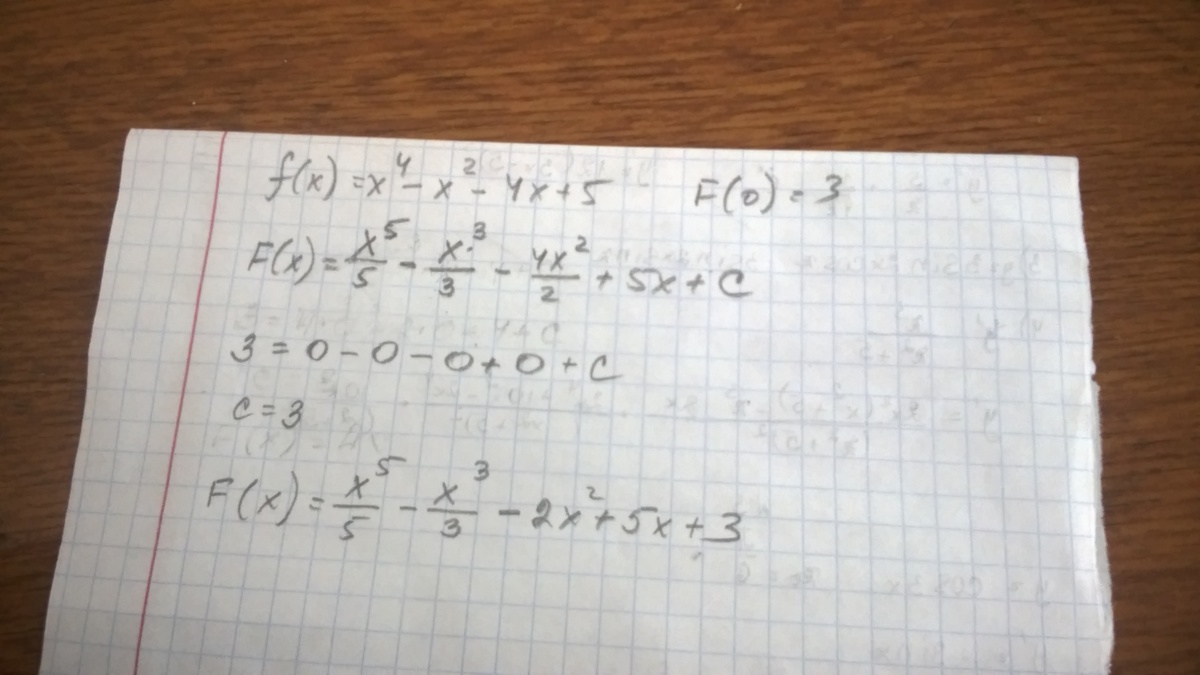 f(x) = x⁴ - x² - 4x + 5 F(0) = 3
F(x) = x⁵/5 - x³/3 - 4x²/2 + 5x + C
3 = 0 - 0 - 0 + 0 + C
C = 3
F(x) = x⁵/5 - x³/3 - 2x² + 5x + 3